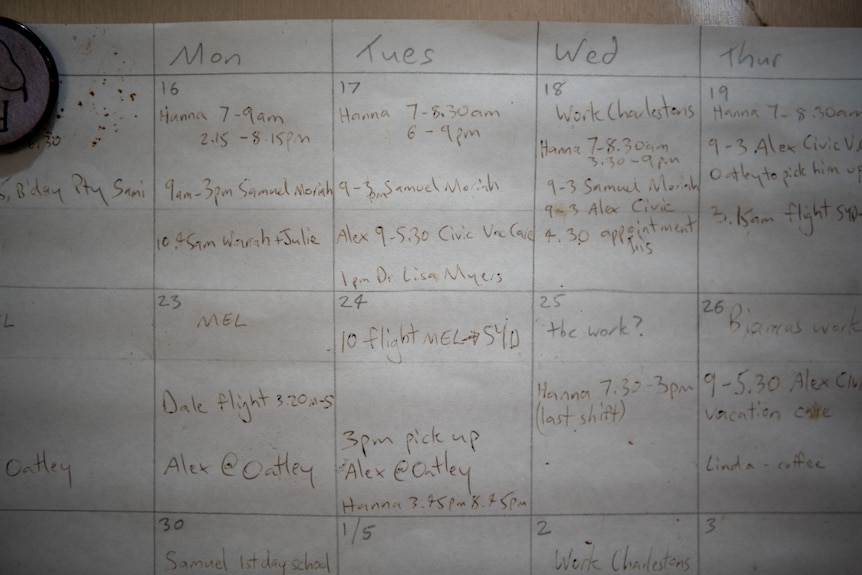 Mon
Tues
Wed
Thur
16
Hanna 7-9am
2.15 - 8.15pm
9am-3pm Samuel Moriah
10.45am + Julie
17
Hanna 7-8.30am
6 - 9pm
9-3pm Samuel Moriah
Alex 9-5.30 Civic Vac Care
1pm Dr Lisa Myers
18
Work Charlestons
Hanna 7-8.30am
3.30-9pm
9-3 Samuel Moriah
9-3 Alex Civic
4.30 appointment
19
Hanna 7-8.30am
9-3 Alex Civic
Oatley to pick him up
3.15am flight SYD
.30
B'day Pty Sani
23
MEL
Dale flight 3.20
Alex @ Oatley
24
10 flight MEL→SYD
3pm pick up
Alex @ Oatley
Hanna 3.45pm 8.45pm
25
tbc work?
Hanna 7.30-3pm
(last shift)
26
Biancas work
9-5.30 Alex
vacation care
Linda - coffee
L
Oatley
30
Samuel 1st day school
1/5
2
Work Charlestons
3